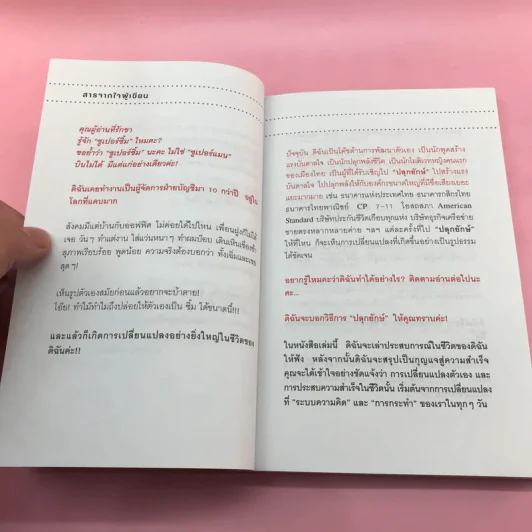 สารจากใจผู้เขียน
คุณผู้อ่านที่รักขา
รู้จัก "ซูเปอร์ซึ่ม" ไหมคะ?
ขอย้ำว่า "ซูเปอร์ซึ่ม" นะคะ ไม่ใช่ "ซูเปอร์แมน"
บินไม่ได้ มีแต่แก่อย่างเดียวค่ะ!
ดิฉันเคยทำงานเป็นผู้จัดการฝ่ายบัญชีมา 10 กว่าปี อยู่ใน
โลกที่แคบมาก
สังคมมีแต่บ้านกับออฟฟิศ ไม่ค่อยได้ไปไหน เพื่อนฝูงก็ไม่ได้
เจอ วันๆ ทำแต่งาน ใส่แว่นหนาๆ ทำผมบ๊อบ เดินเหินเชื่องช้า
สุภาพเรียบร้อย พูดน้อย ความจริงต้องบอกว่า ทั้งเฉิ่มและเชย
สุดๆ!
เห็นรูปตัวเองสมัยก่อนแล้วอยากจะบ้าตาย!
โอ๊ย! ทำไมทำไมถึงปล่อยให้ตัวเองเป็น ซึ่ม ได้ขนาดนี้!!!
และแล้วก็เกิดการเปลี่ยนแปลงอย่างยิ่งใหญ่ในชีวิตของ
ดิฉันค่ะ!!
ปัจจุบัน ดิฉันเป็นโค้ชด้านการพัฒนาตัวเอง เป็นนักพูดสร้าง
แรงบันดาลใจ เป็นนักปลุกพลังชีวิต เป็นนักโมติเวทหญิงคนแรก
ของเมืองไทย เป็นผู้ที่ได้รับเชิญไป "ปลุกยักษ์" ไปสร้างแรง
บันดาลใจ ไปปลุกพลังให้กับองค์กรขนาดใหญ่ที่มีชื่อเสียงเยอะ
แยะมากมาย เช่น ธนาคารแห่งประเทศไทย ธนาคารกสิกรไทย
ธนาคารไทยพาณิชย์ CP 7-11 โอสถสภา American
Standard บริษัทประกันชีวิตเกือบทุกแห่ง บริษัทธุรกิจเครือข่าย
ขายตรงหลากหลายค่าย ฯลฯ แต่ละครั้งที่ไป "ปลุกยักษ์"
ให้ที่ไหน ก็จะเห็นการเปลี่ยนแปลงที่เกิดขึ้นอย่างเป็นรูปธรรม
ได้ชัดเจน
อยากรู้ไหมคะว่าดิฉันทำได้อย่างไร? ติดตามอ่านต่อไปนะ
คะ...
ดิฉันจะบอกวิธีการ "ปลุกยักษ์" ให้คุณทราบค่ะ!
ในหนังสือเล่มนี้ ดิฉันจะเล่าประสบการณ์ในชีวิตของดิฉัน
ให้ฟัง หลังจากนั้นดิฉันจะสรุปเป็นกุญแจสู่ความสำเร็จ
คุณจะได้เข้าใจอย่างชัดแจ้งว่า การเปลี่ยนแปลงตัวเอง และ
การประสบความสำเร็จในชีวิตนั้น เริ่มต้นจากการเปลี่ยนแปลง
ที่ "ระบบความคิด" และ "การกระทำ" ของเราในทุกๆ วัน